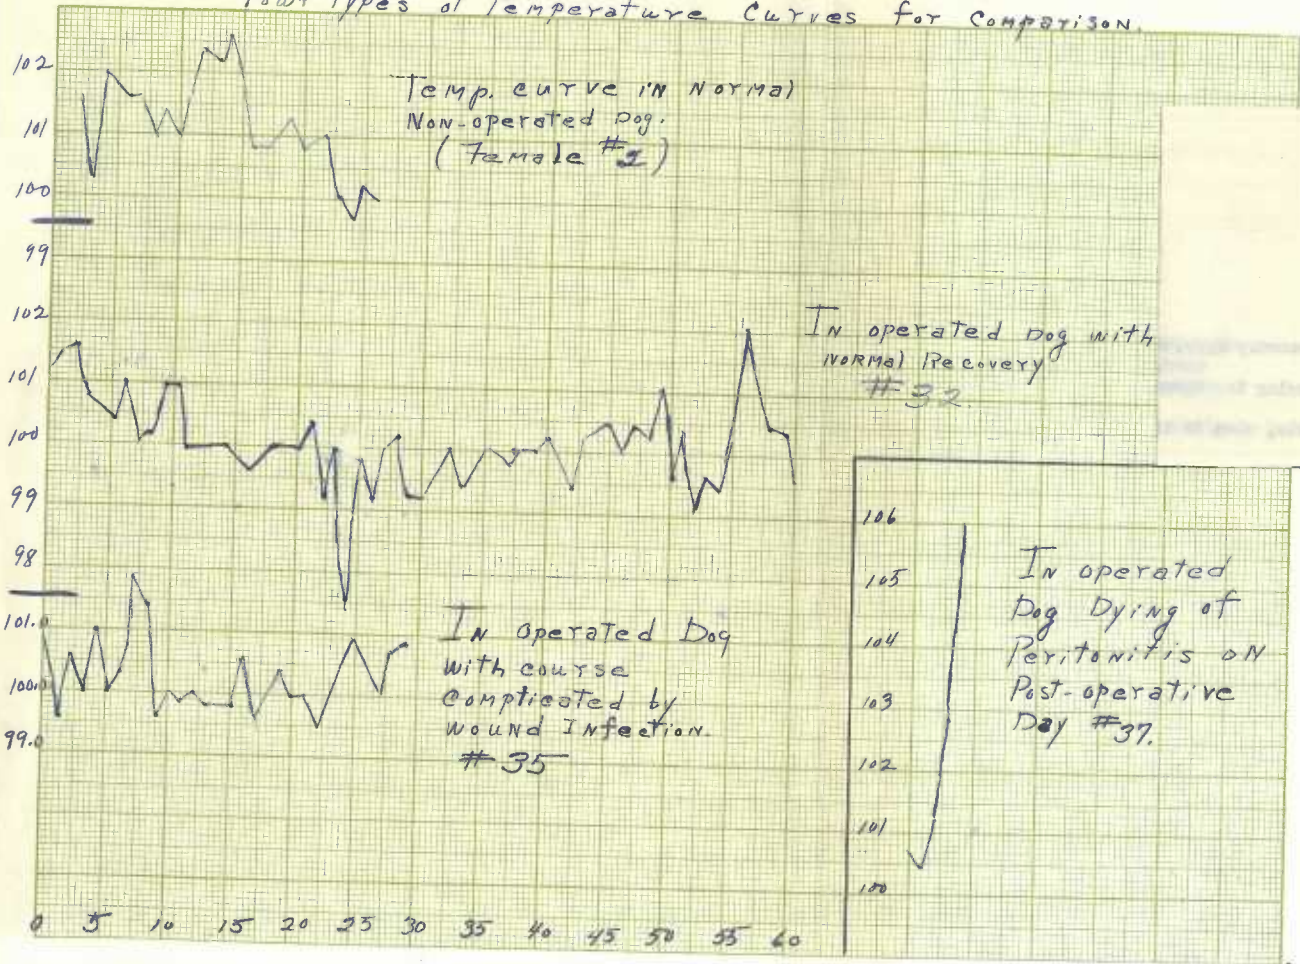 Four Types of Temperature Curves for Comparison.
102
101
100
99
Temp. curve in Normal
Non-operated Dog.
(Female #2)
102
101
100
99
98
In operated Dog with
Normal Recovery
#32.
101.0
100.0
99.0
In operated Dog
with course
complicated by
wound Infection.
#35
106
105
104
103
102
101
100
In operated
Dog Dying of
Peritonitis on
Post-operative
Day #37.
0 5 10 15 20 25 30 35 40 45 50 55 60